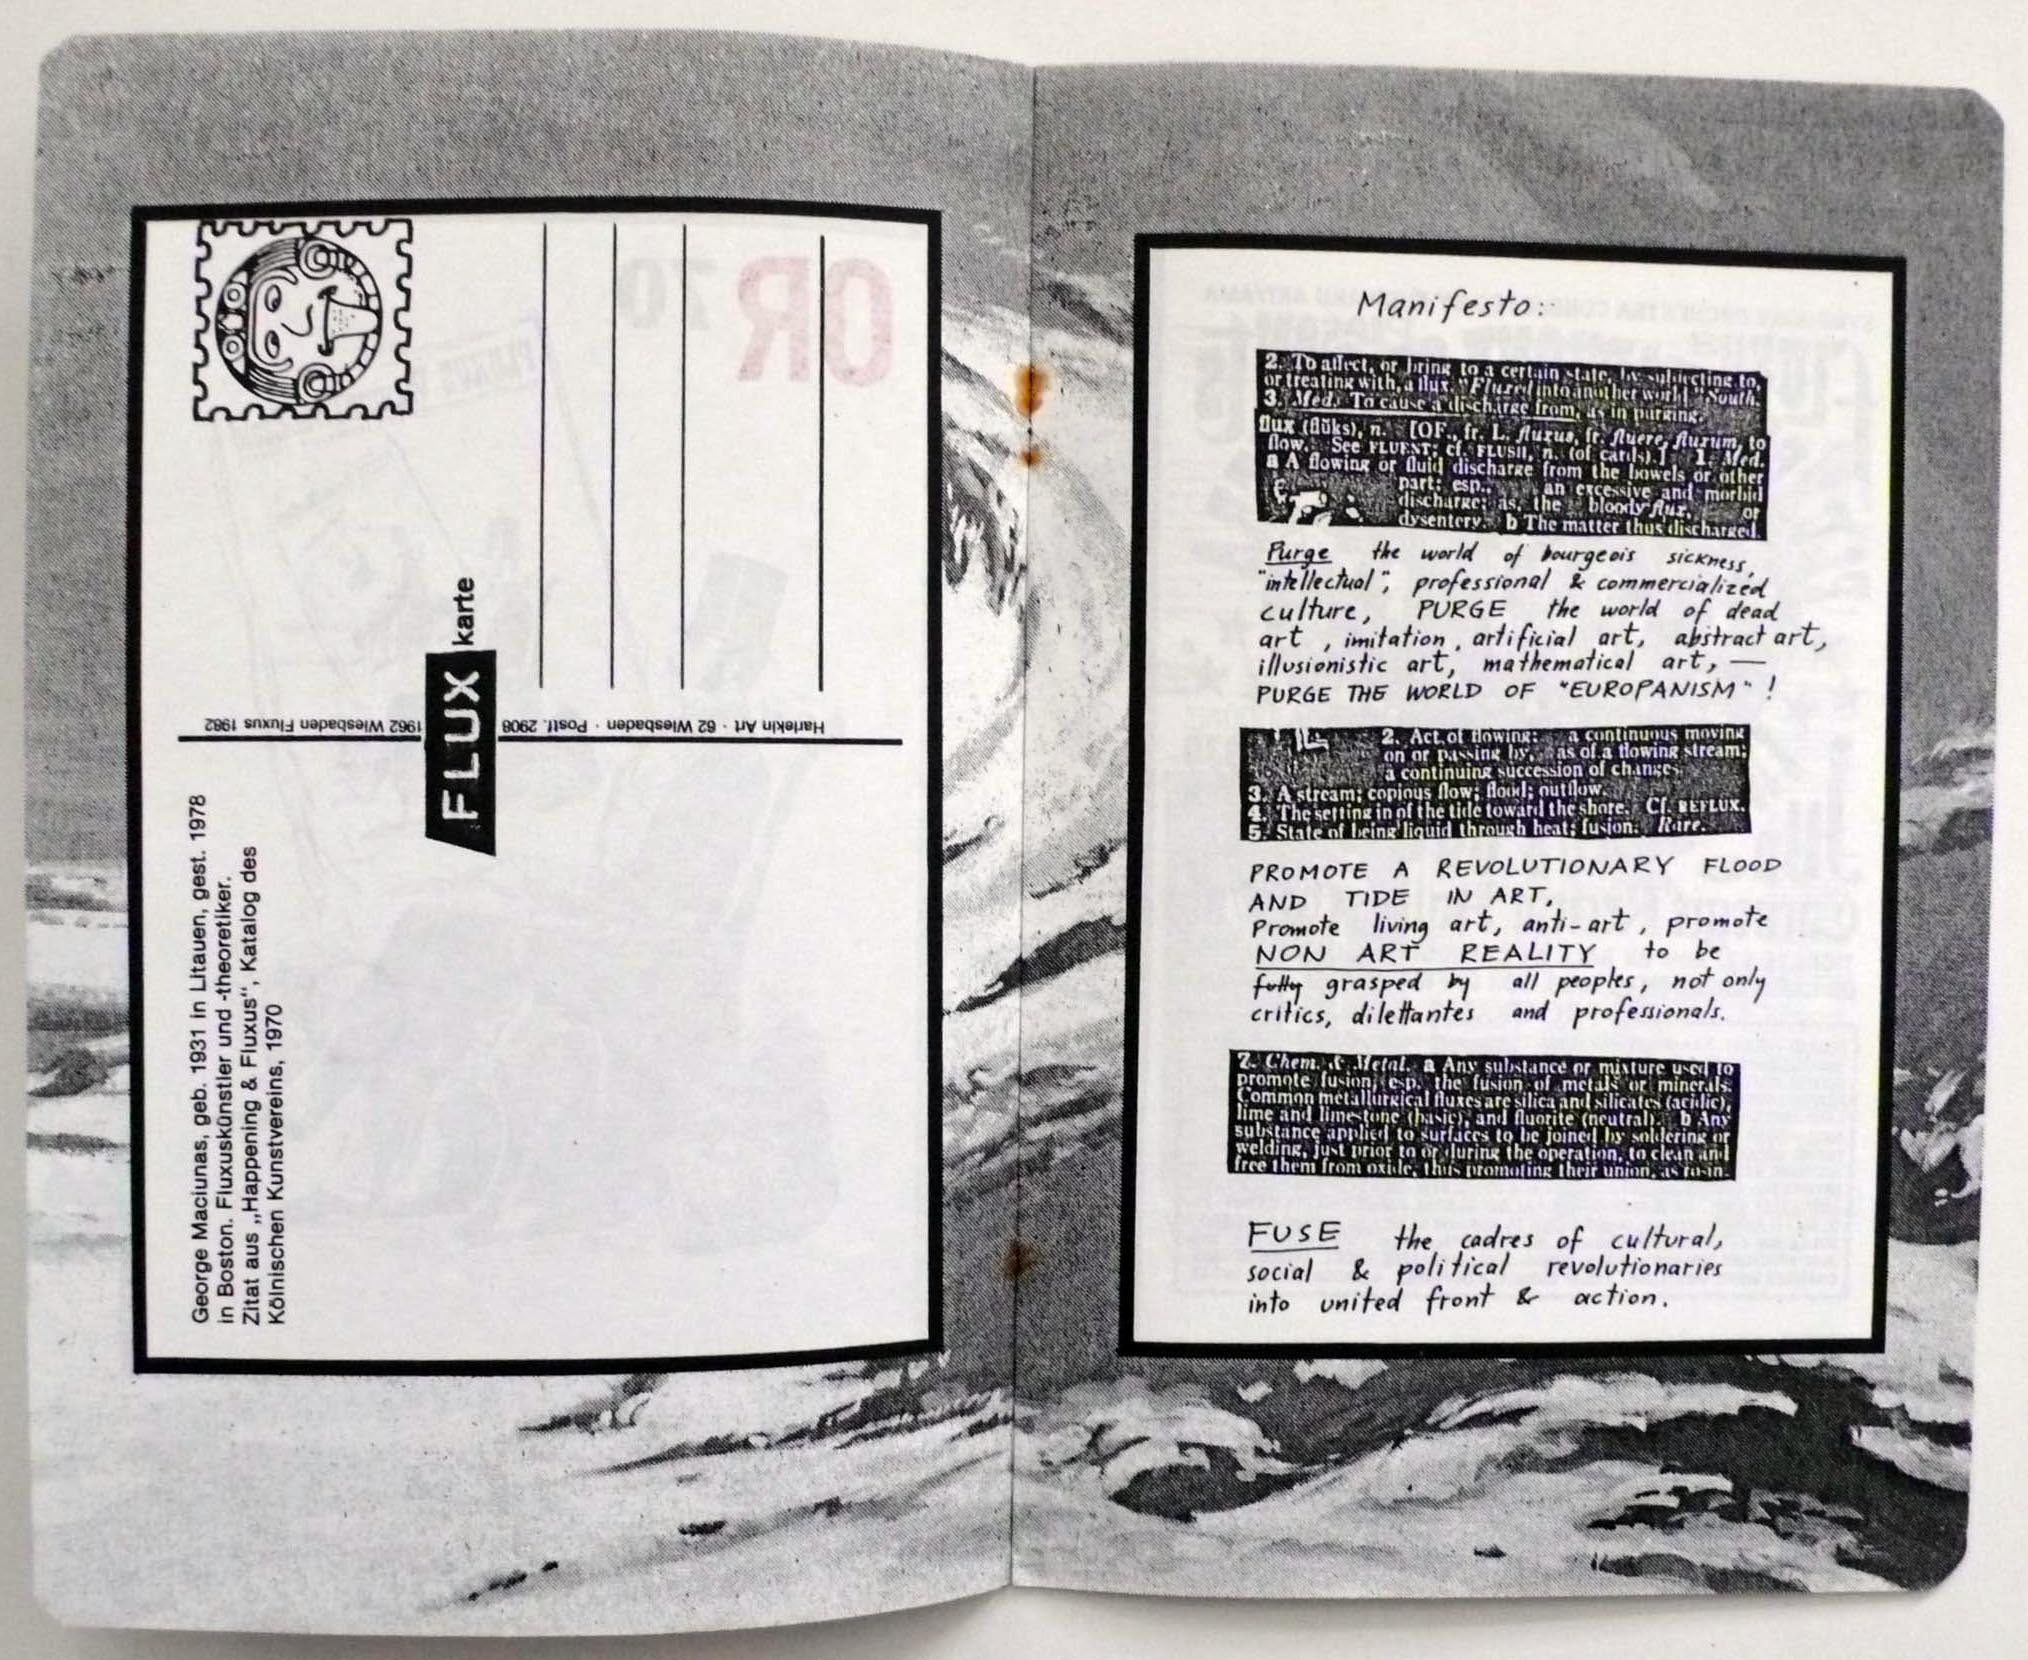 George Maciunas, geb. 1931 in Litauen, gest. 1978
in Boston. Fluxuskünstler und -theoretiker.
Zitat aus „Happening & Fluxus“, Katalog des
Kölnischen Kunstvereins, 1970
FLUX karte
Harlekin Art · 62 Wiesbaden · Postf. 2908
1962 Wiesbaden Fluxus 1982
OR
Manifesto:
2. To affect, or bring to a certain state, by subjecting to,
or treating with, a flux. "Fluxed into another world." South.
3. Med. To cause a discharge from, as in purging.
flux (flŭks), n. [OF., fr. L. fluxus, fr. fluere, fluxum, to
flow. See FLUENT; cf. FLUSH, n. (of cards).] 1. Med.
a A flowing or fluid discharge from the bowels or other
part: esp., an excessive and morbid
discharge; as, the bloody flux, or
dysentery. b The matter thus discharged.
Purge the world of bourgeois sickness,
"intellectual", professional & commercialized
culture, PURGE the world of dead
art, imitation, artificial art, abstract art,
illusionistic art, mathematical art, —
PURGE THE WORLD OF "EUROPANISM"!
2. Act of flowing: a continuous moving
on or passing by, as of a flowing stream;
a continuing succession of changes.
3. A stream; copious flow; flood; outflow.
4. The setting in of the tide toward the shore. Cf. REFLUX.
5. State of being liquid through heat; fusion. Rare.
PROMOTE A REVOLUTIONARY FLOOD
AND TIDE IN ART,
Promote living art, anti-art, promote
NON ART REALITY to be
fully grasped by all peoples, not only
critics, dilettantes and professionals.
2. Chem. & Metal. a Any substance or mixture used to
promote fusion, esp. the fusion of metals or minerals.
Common metallurgical fluxes are silica and silicates (acidic),
lime and limestone (basic), and fluorite (neutral). b Any
substance applied to surfaces to be joined by soldering or
welding, just prior to or during the operation, to clean and
free them from oxide, thus promoting their union, as rosin.
FUSE the cadres of cultural,
social & political revolutionaries
into united front & action.